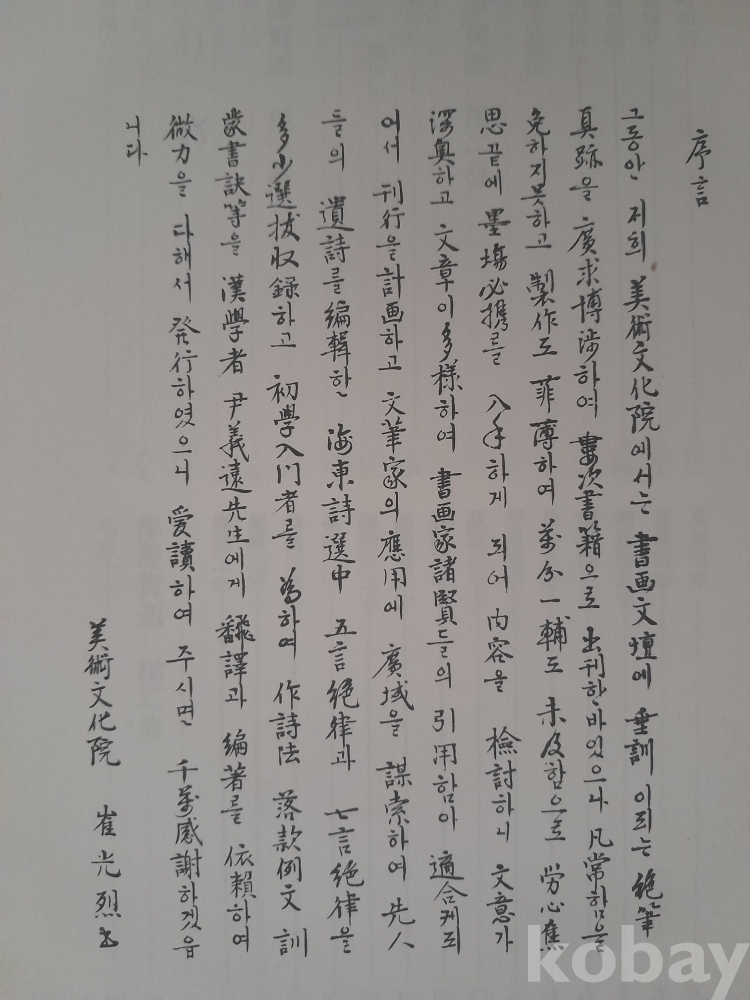 序言
그동안 저희 美術文化院에서는 書画文壇에 垂訓이되는 絶筆
真跡을 廣求博涉하여 屢次書籍으로 出刊한바있으나 凡常함을
免하지못하고 製作도 菲薄하여 萬分一輔도 未及함으로 労心焦
思끝에 墨場必携를 入手하게 되어 内容을 檢討하니 文意가
深奧하고 文章이多樣하여 書画家諸賢들의 引用함이 適合케되
어서 刊行을計画하고 文筆家의應用에 廣域을 謀索하여 先人
들의 遺詩를編輯한 海東詩選中 五言絶律과 七言絶律을
多少選拔収録하고 初學入门者를 為하여 作詩法 落款例文 訓
蒙書訣等을 漢學者 尹義遠先生에게 飜譯과 編著를 依賴하여
微力을 다해서 発行하였으니 愛讀하여 주시면 千萬感謝하겠읍
니다
美術文化院 崔光烈
kobay